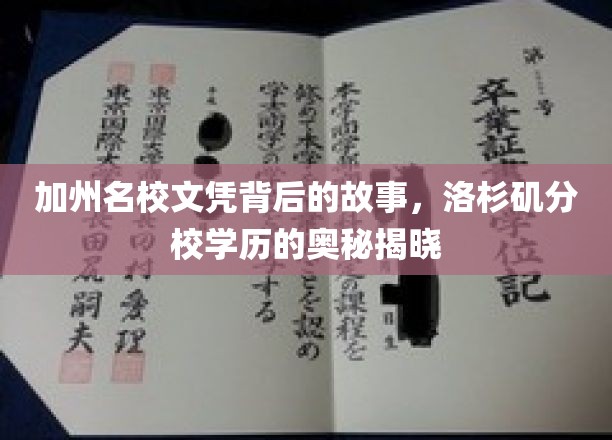 加州名校文凭背后的故事，洛杉矶分
校学历的奥秘揭晓
第 号
卒業証 学位記
本学商学部 定の課程を
修めて本学 ことを認め
学士(商学)の学 する
平成
東京国際大学 田村愛理
東京国際大 長田尻嗣夫